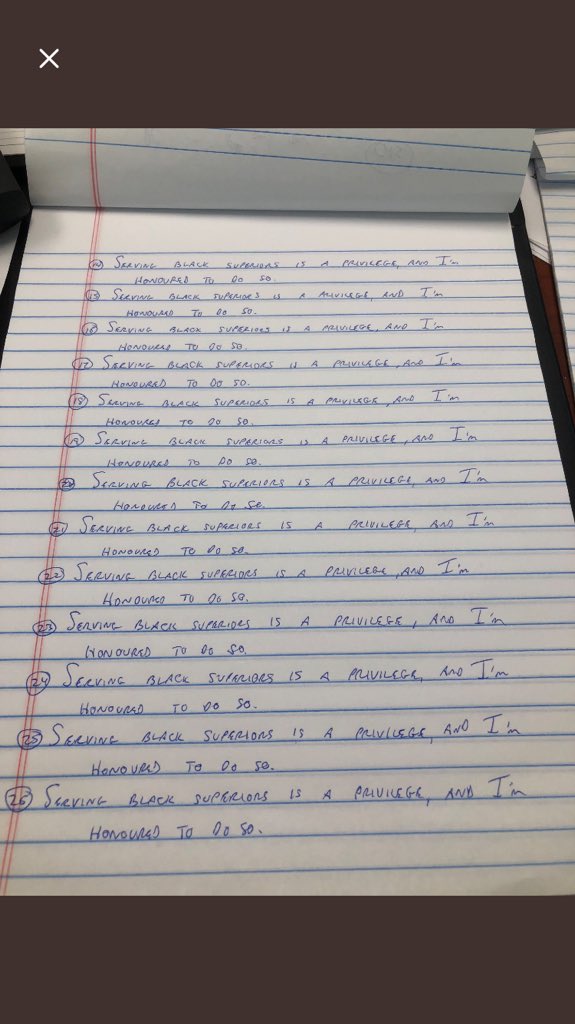 14 SERVING BLACK SUPERIORS IS A PRIVILEGE, AND I'm
HONOURED TO DO SO.
15 SERVING BLACK SUPERIORS IS A PRIVILEGE, AND I'm
HONOURED TO DO SO.
16 SERVING BLACK SUPERIORS IS A PRIVILEGE, AND I'm
HONOURED TO DO SO.
17 SERVING BLACK SUPERIORS IS A PRIVILEGE, AND I'm
HONOURED TO DO SO.
18 SERVING BLACK SUPERIORS IS A PRIVILEGE, AND I'm
HONOURED TO DO SO.
19 SERVING BLACK SUPERIORS IS A PRIVILEGE, AND I'm
HONOURED TO DO SO.
20 SERVING BLACK SUPERIORS IS A PRIVILEGE, AND I'm
HONOURED TO DO SO.
21 SERVING BLACK SUPERIORS IS A PRIVILEGE, AND I'm
HONOURED TO DO SO.
22 SERVING BLACK SUPERIORS IS A PRIVILEGE, AND I'm
HONOURED TO DO SO.
23 SERVING BLACK SUPERIORS IS A PRIVILEGE, AND I'm
HONOURED TO DO SO.
24 SERVING BLACK SUPERIORS IS A PRIVILEGE, AND I'm
HONOURED TO DO SO.
25 SERVING BLACK SUPERIORS IS A PRIVILEGE, AND I'm
HONOURED TO DO SO.
26 SERVING BLACK SUPERIORS IS A PRIVILEGE, AND I'm
HONOURED TO DO SO.